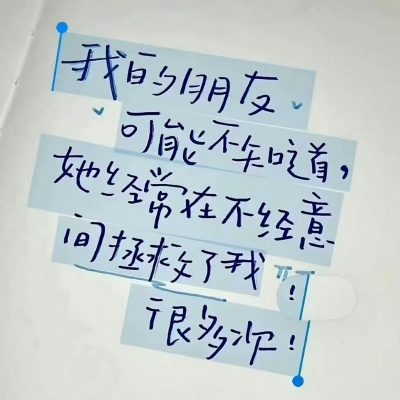 我的朋友
可能不知道，
她经常在不经意
间拯救了我
很多次！